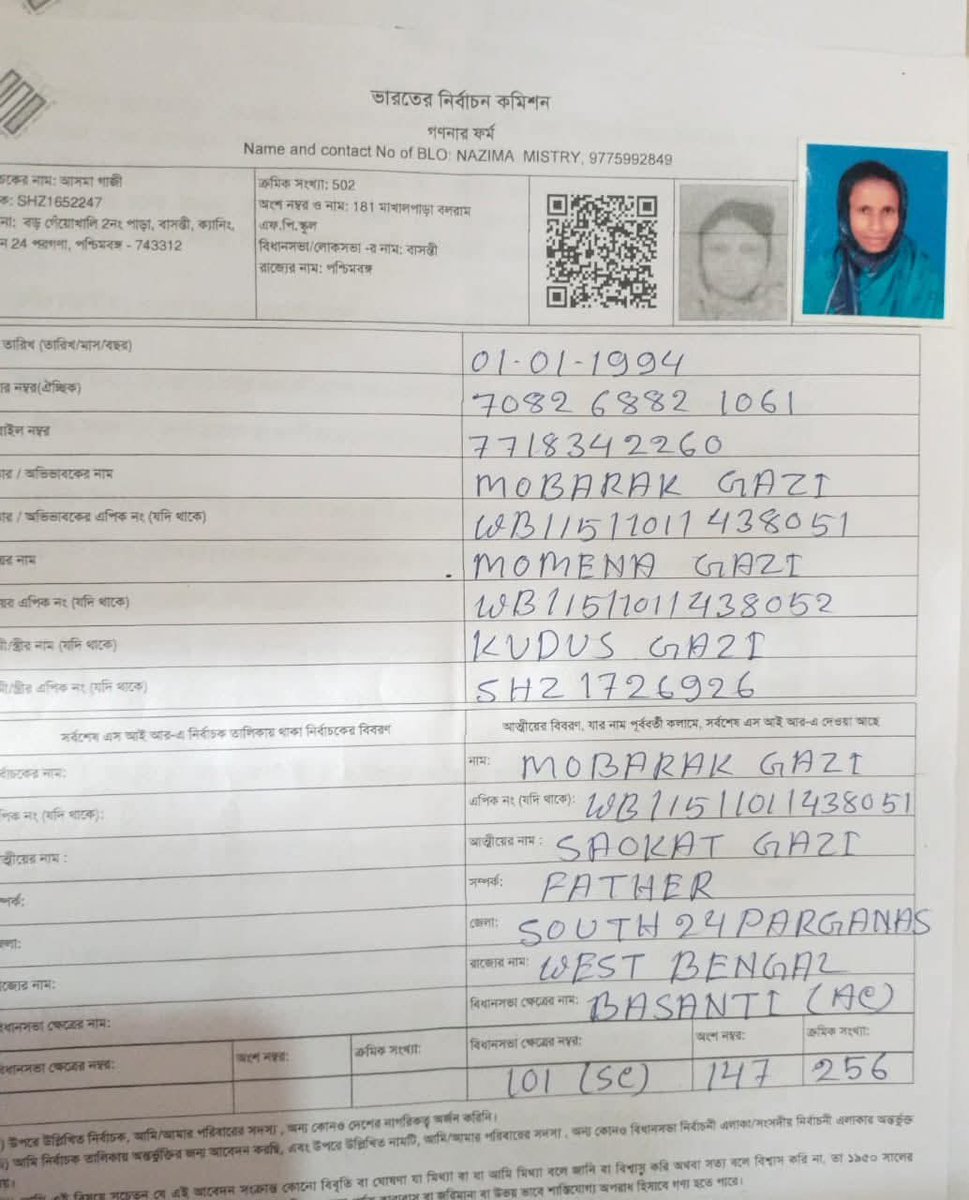 ভারতের নির্বাচন কমিশন
গণনার ফর্ম
Name and contact No of BLO: NAZIMA MISTRY, 9775992849
নাম: আসমা গাজী
SHZ1652247
বড় গেঁয়োখালি 2নং পাড়া, বাসন্তী, ক্যানিং,
24 পরগণা, পশ্চিমবঙ্গ - 743312
ক্রমিক সংখ্যা: 502
অংশ নম্বর ও নাম: 181 মাখালপাড়া বলরাম
এফ.পি.স্কুল
বিধানসভা/লোকসভা -র নাম: বাসন্তী
রাজ্যের নাম: পশ্চিমবঙ্গ
তারিখ (তারিখ/মাস/বছর) 01-01-1994
নম্বর(ঐচ্ছিক) 7082 6882 1061
নম্বর 7718342260
/ অভিভাবকের নাম MOBARAK GAZI
/ অভিভাবকের এপিক নং (যদি থাকে) WB/15/101/438051
নাম MOMENA GAZI
এপিক নং (যদি থাকে) WB/15/101/438052
/স্ত্রীর নাম (যদি থাকে) KUDUS GAZI
/স্ত্রীর এপিক নং (যদি থাকে) SHZ1726926
সর্বশেষ এস আই আর-এ নির্বাচক তালিকায় থাকা নির্বাচকের বিবরণ
আত্মীয়ের বিবরণ, যার নাম পূর্ববর্তী কলামে, সর্বশেষ এস আই আর-এ দেওয়া আছে
নাম: নাম: MOBARAK GAZI
নং (যদি থাকে): এপিক নং (যদি থাকে): WB/15/101/438051
নাম : আত্মীয়ের নাম : SAOKAT GAZI
সম্পর্ক: FATHER
জেলা: SOUTH 24 PARGANAS
নাম: রাজ্যের নাম: WEST BENGAL
বিধানসভা ক্ষেত্রের নাম: বিধানসভা ক্ষেত্রের নাম: BASANTI (AC)
বিধানসভা ক্ষেত্রের নম্বর: অংশ নম্বর: ক্রমিক সংখ্যা: বিধানসভা ক্ষেত্রের নম্বর: অংশ নম্বর: ক্রমিক সংখ্যা:
101 (SC) 147 256
উপরে উল্লিখিত নির্বাচক, আমি/আমার পরিবারের সদস্য , অন্য কোনও দেশের নাগরিকত্ব অর্জন করিনি।
আমি নির্বাচক তালিকায় অন্তর্ভুক্তির জন্য আবেদন করছি, এবং উপরে উল্লিখিত নামটি, আমি/আমার পরিবারের সদস্য , অন্য কোনও বিধানসভা নির্বাচনী এলাকা/সংসদীয় নির্বাচনী এলাকার অন্তর্ভুক্ত
এই আবেদন সংক্রান্ত কোনো বিবৃতি বা ঘোষণা যা মিথ্যা বা যা আমি মিথ্যা বলে জানি বা বিশ্বাস করি অথবা সত্য বলে বিশ্বাস করি না, তা ১৯৫০ সালের